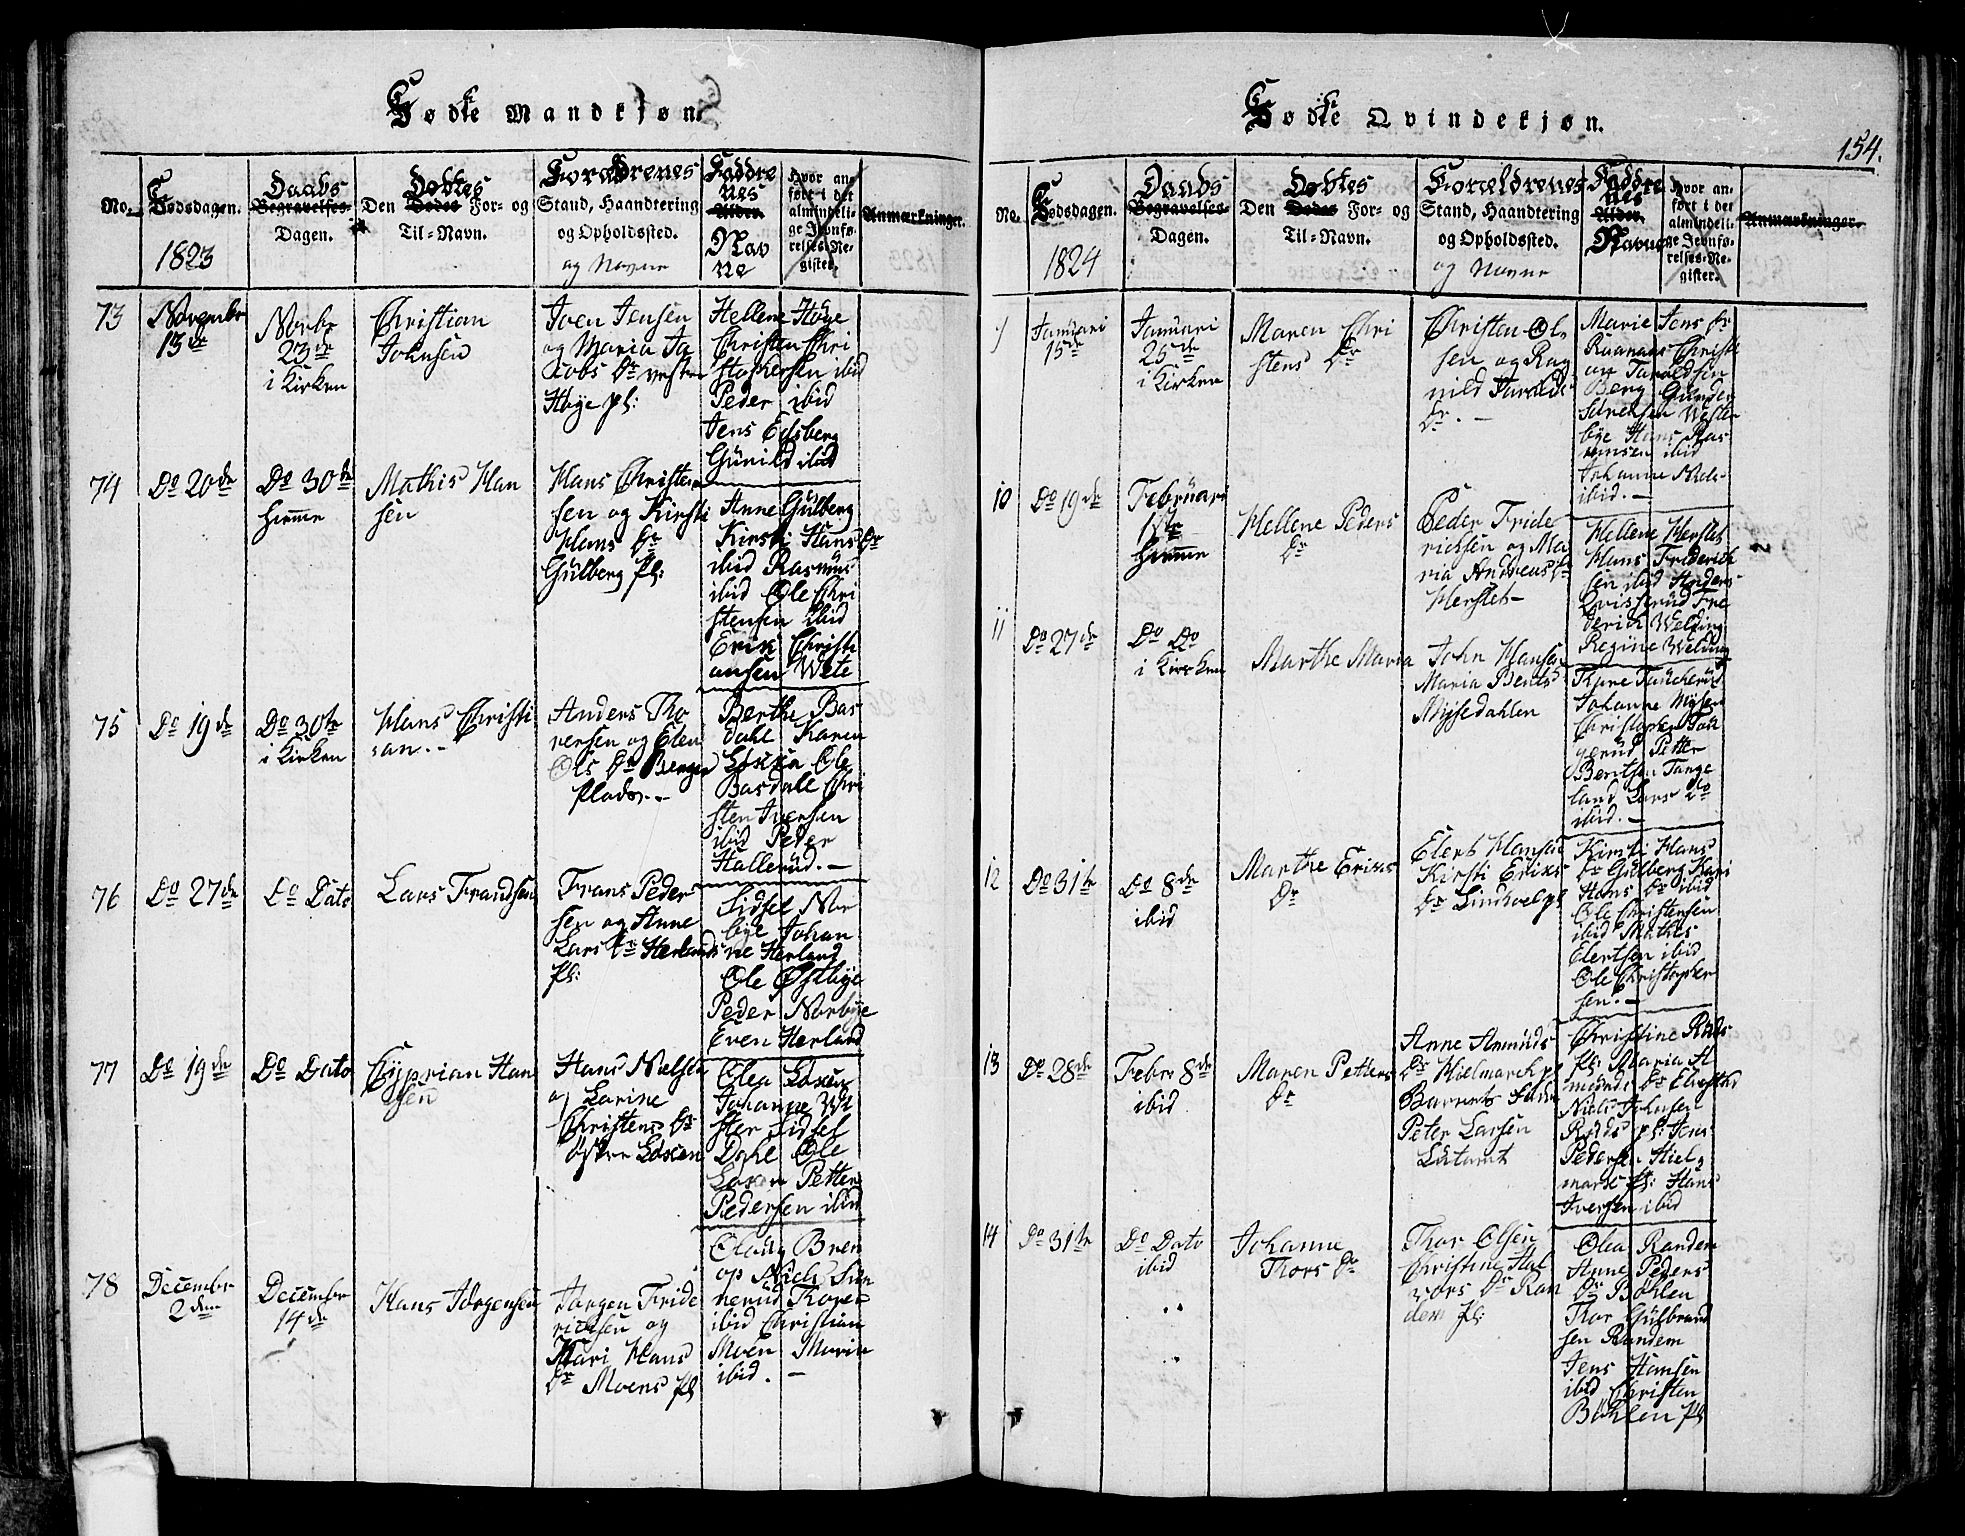 Fødte Mandkjøn
No.
Fødsdagen.
1823
Daabs
Begravelses-
Dagen.
Døbtes
Den Dødes For- og
Til-Navn.
Forældrenes
Stand, Haandtering
og Opholdssted.
og Navne
Faddre
nes
Alder.
Nav
ne
Hvor an-
ført i det
almindeli-
ge Jevnfø-
relses-Re-
gister.
Anmærkninger.
73
Novembr
13de
Norbr
23de
i Kirken
Christian
Johnsen
Iver Jensen
og Maria Ja
cobs Dr vestre
Høye pl:
Hellene Høye
Christen Chri
stophersen ibid
Peder ibid
Jens Edsberg
Gunild ibid
74
Do 20de
Do 30te
Hiemme
Mathis Han
sen
Hans Christen
sen og Kirsti
Hans Dr
Gulberg pl:
Anne Gulberg
Kirsti Hans Dr
ibid Rasmus
ibid Ole Chri
stensen ibid
Erik Christi
ansen Wete
75
Do 19de
Do 30te
i Kirken
Hans Christi
an.-
Anders Tho
versen og Elen
Ols Dr Berger
plads.-
Berthe Bas
dahl Karen
Løken Ole
Basdall Chri
sten Iversen
ibid Peder
Hallerud.-
76
Do 27de
Do Dato
Lars Frandsen
Frans Peder
sen og Anne
Lars Dr Herlands
pl:
Sidsel Nor
bye Johan
ne Herland
Ole Østbye
Peder Norbye
Even Herland
77
Do 19de
Do Dato
Cyprian Han
sen
Hans Nielsen
og Larine
Christens Dr
østre Løken
Olea Løken
Johanne We
ster Sidsel
Dahl Ole
Løken Petter
Pedersen ibid
78
Decembr
2den
Decembr
14de
Hans Jørgensen
Jørgen Fride
richsen og
Mari Hans
Dr Moens pl
Oloug Bren
op Niels Sun
herud Thover
ibid Christian
Moen Marin
ibid. -
Fødte Qvindekjøn.
154.
No.
Fødsdagen.
1824
Daabs
Begravelses-
Dagen.
Døbtes
Den Dødes For- og
Til-Navn.
Forældrenes
Stand, Haandtering
og Opholdssted.
og Navne
Faddre
nes
Alder.
Navne
Hvor an-
ført i det
almindeli-
ge Jevnfø-
relses-Re-
gister.
Anmærkninger.
9
Januari
15de
Januari
25de
i Kirken
Maren Chri
stens Dr
Christen Ol
sen og Rag
nild Taralds
Dr. -
Marie Jens Dr
Christi
an Taraldsen
Berg Gunder
Sørensen Wester
bye Hans Ras
musen ibid
Johanne Niels
ibid. -
10
Do 19de
Februari
1ste
Hiemme
Hellene Peders
Dr
Peder Fride
richsen og Ma
ria Andreas Dr
Herslet-
Hellene Herslet
Hans Friderich
sen ibid Anders
Qvisserud Fre
derich Welding
Regine Welding
11
Do 27de
Do Do
i Kirken
Marthe Maria
John Hansen
Maria Bents
Mysedahlen
Johanne Mysen
Christopher
gerud Petter
Berntsen Tange
land Lars Do
ibid. -
12
Do 31te
Do 8de
ibid
Marthe Eriks
Dr
Elert Hansen
Kirsti Eriks
Dr Lindhol pl
Kirsti Hans
Dr Gulberg Kari
Hans Dr ibid
Ole Christensen
ibid Mathis
Elertsen ibid
Ole Christopher
sen. -
13
Do 28de
Febr 8de
ibid
Maren Petters
Dr
Anne Amunds
Dr Hielmark pl
Barnets Fader
Peter Larsen
Christine Ruds
pl: Maria A
munds Dr
Niels Johnsen
Ruds pl: Jens
Pedersen Hiel
mark pl: Hans
Iversen ibid
14
Do 31te
Do Dato
ibid
Johanne
Thors Dr
Thor Olsen
Christine Hal
vors Dr Ran
dem pl:
Olea Randem
Anne Peders
Dr Bøhlen
Thor Gulbrand
sen Randem
Jens Hansen
ibid Christen
Bøhlen pl